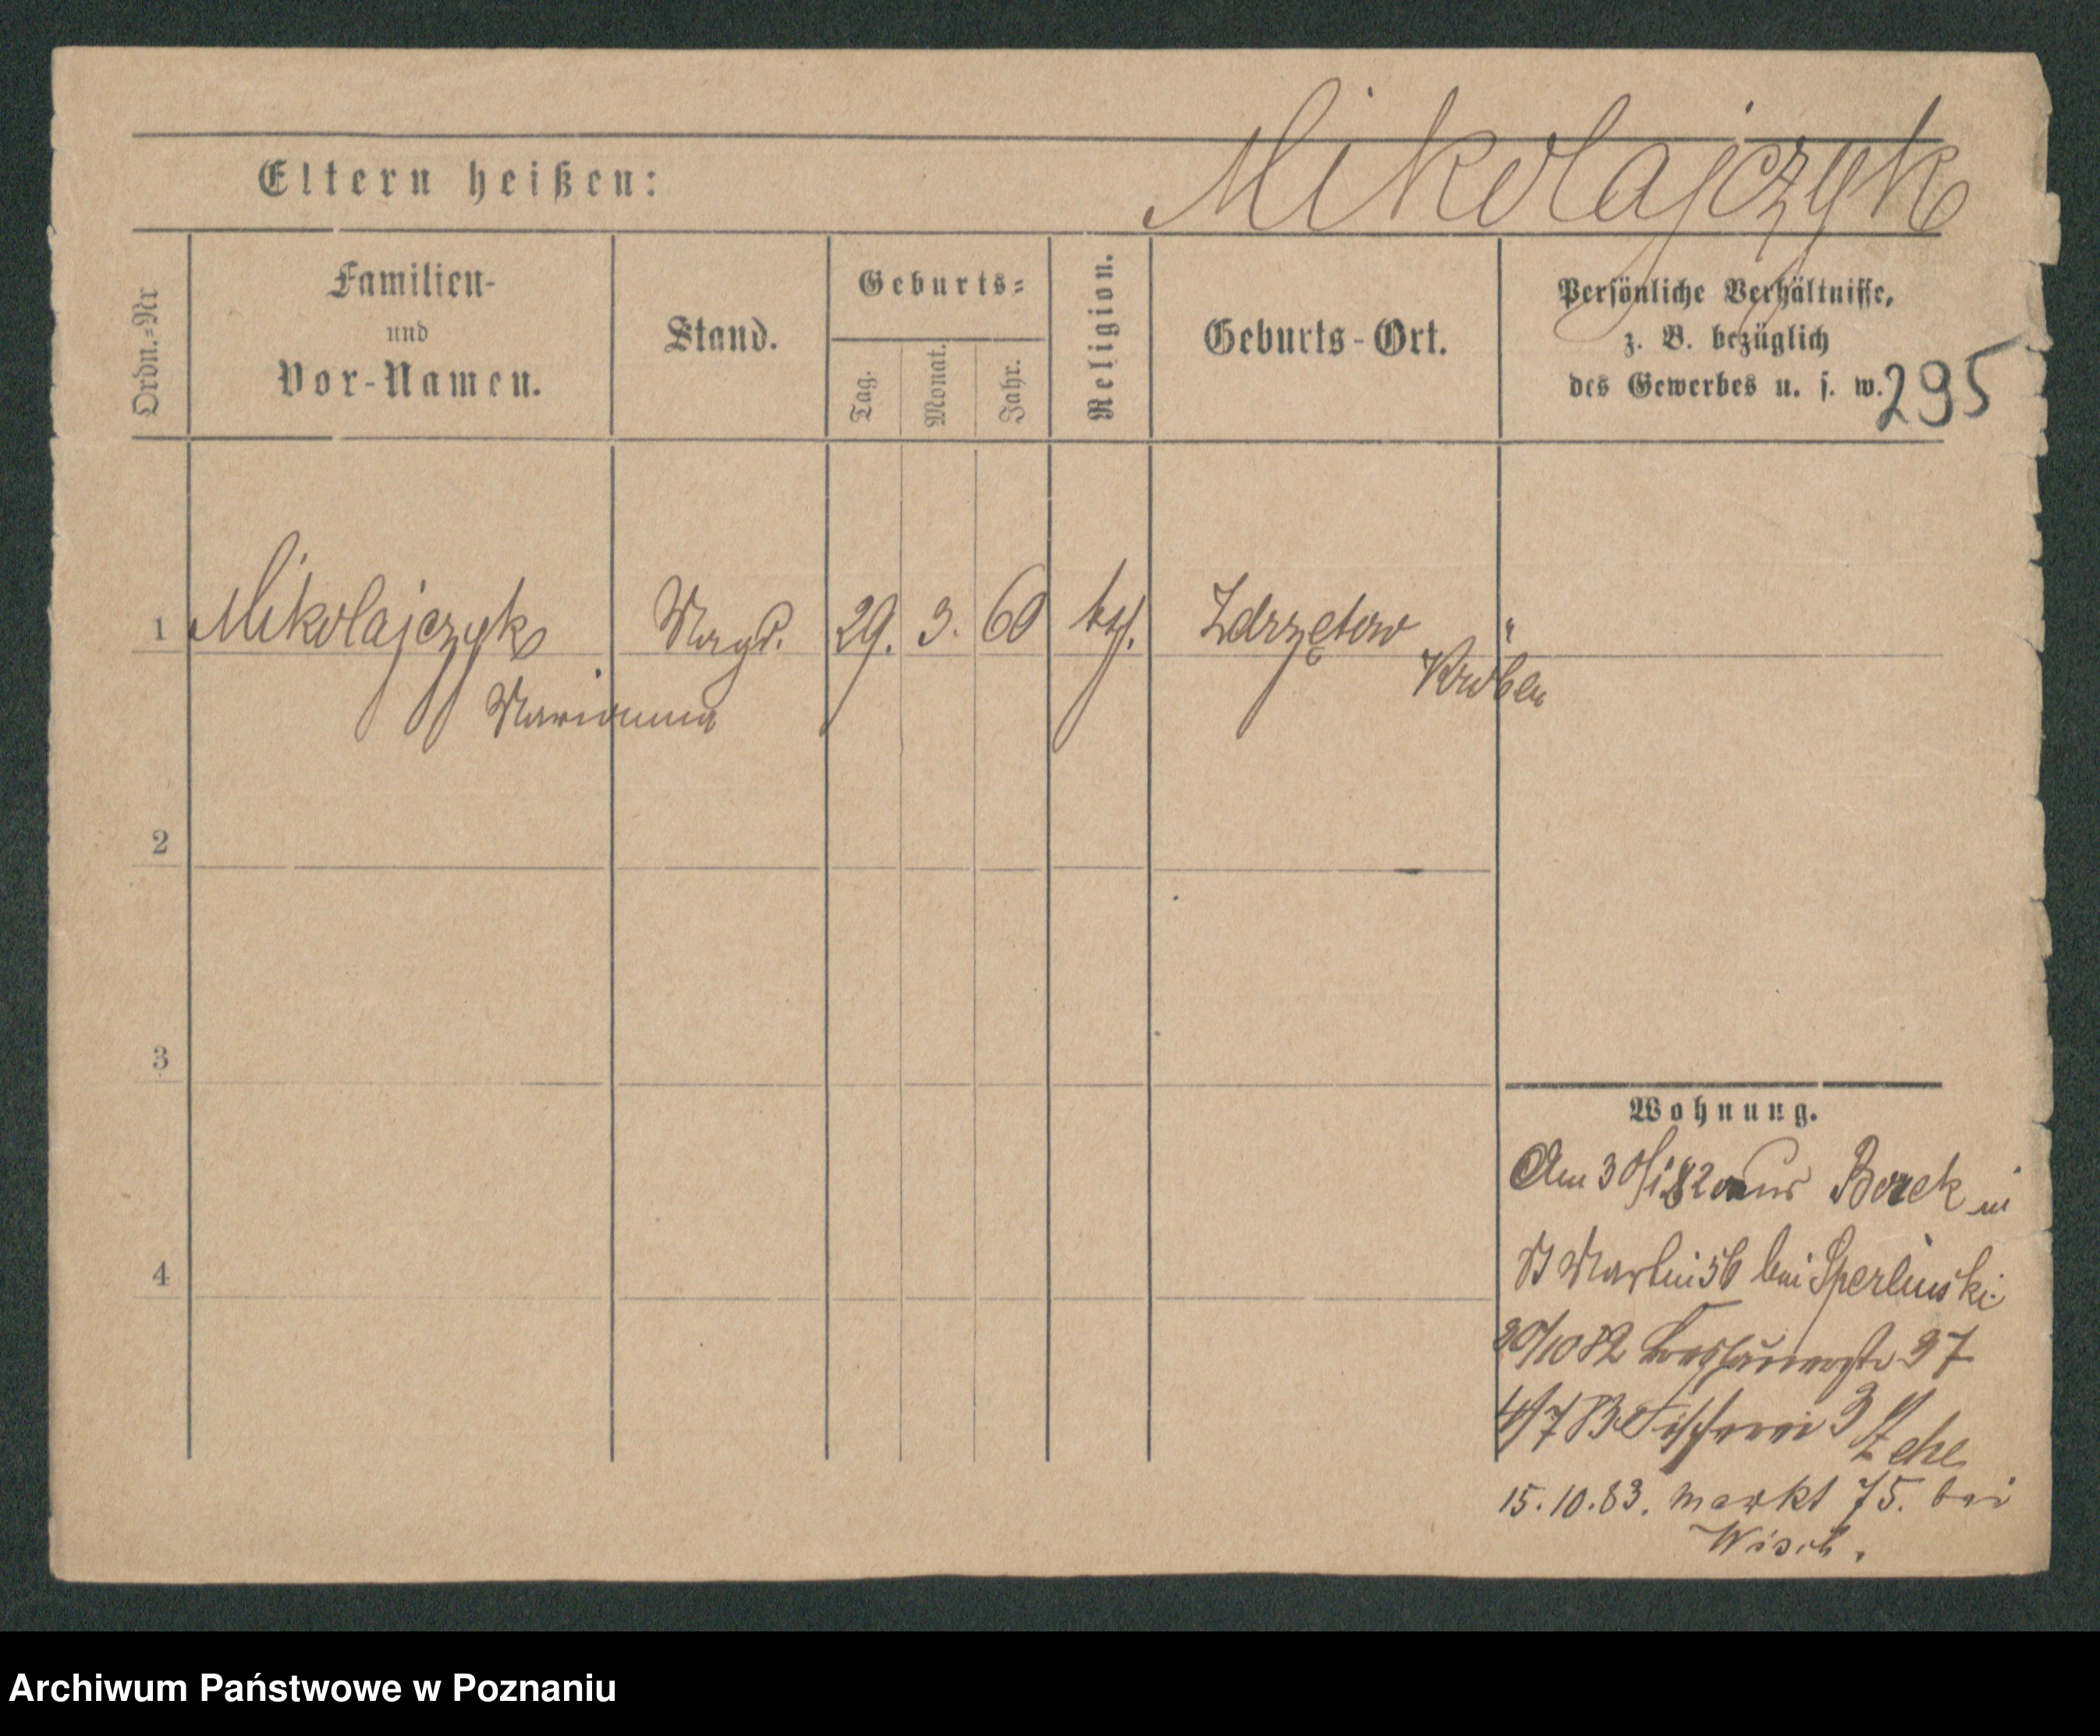 Mikolajczyk
Eltern heißen:
Ordn.=Nr
Familien-
und
Vor-Namen.
Stand.
Geburts=
Tag.
Monat.
Jahr.
Religion.
Geburts-Ort.
Persönliche Verhältnisse,
z. B. bezüglich
des Gewerbes u. s. w.
295
1 Mikolajczyk Magd. 29. 3. 60 kth. Zdrzętow "
Kröben
Marianna
2
3
4
Wohnung.
Am 30/1 82 aus Borek in
St Martin 56 bei Sperlinski
20/10 82 37
4/7 83 Fischerei 3 Zehe
15.10.83. Markt 75. bei
Archiwum Państwowe w Poznaniu